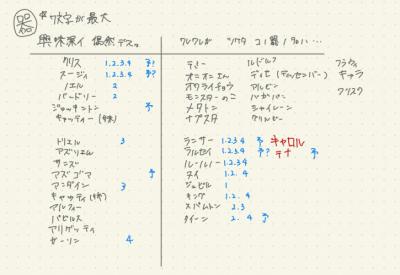 器 *7文字が最大
興味深イ 偶然デスッ
ワレワレガ ツクッタ コノ器ノ名ハ…
クリス 1.2.3.4 予?
スージィ 1.2.3.4 予?
ノエル 2
バードリー 2
ジャッキントン 予
キャッティー(妹)
トリエル 3
アズリエル
サンズ
アズゴア 予
アンダイン 3
キャッティ(姉)
アルフィー
パピルス
アリゲッティ
ガーソン 4
テミー
オニオンさん
オワライチョウ
モンスターのこ
メタトン
ナプスタ
ルドルフ
ディセ(ディセンバー)
アルビン
ハガパン
シャイレーン
カリルビー
フラウィ
キャラ
フリスク
ランサー 1.2.3.4 予 キャロル
ラルセイ 1.2.3.4 予? テナ 予
ルールノー 1.2.3.4
スイ 1.2.4
ジェビル 1
キング 1.2.4
スパムトン 2.3
クイーン 2.4 予